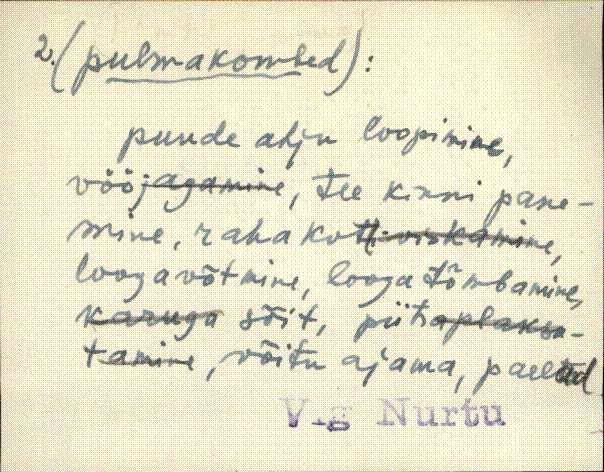 2. (pulmakombed):
puude ahju loopimine,
vööjagamine, tee kinni pane-
mine, raha kotti viskamine,
looga võtmine, looga tõmbamine,
karuga sõit, piitsaplaksu-
tamine, võitu ajama, paeltad
Vig Nurtu